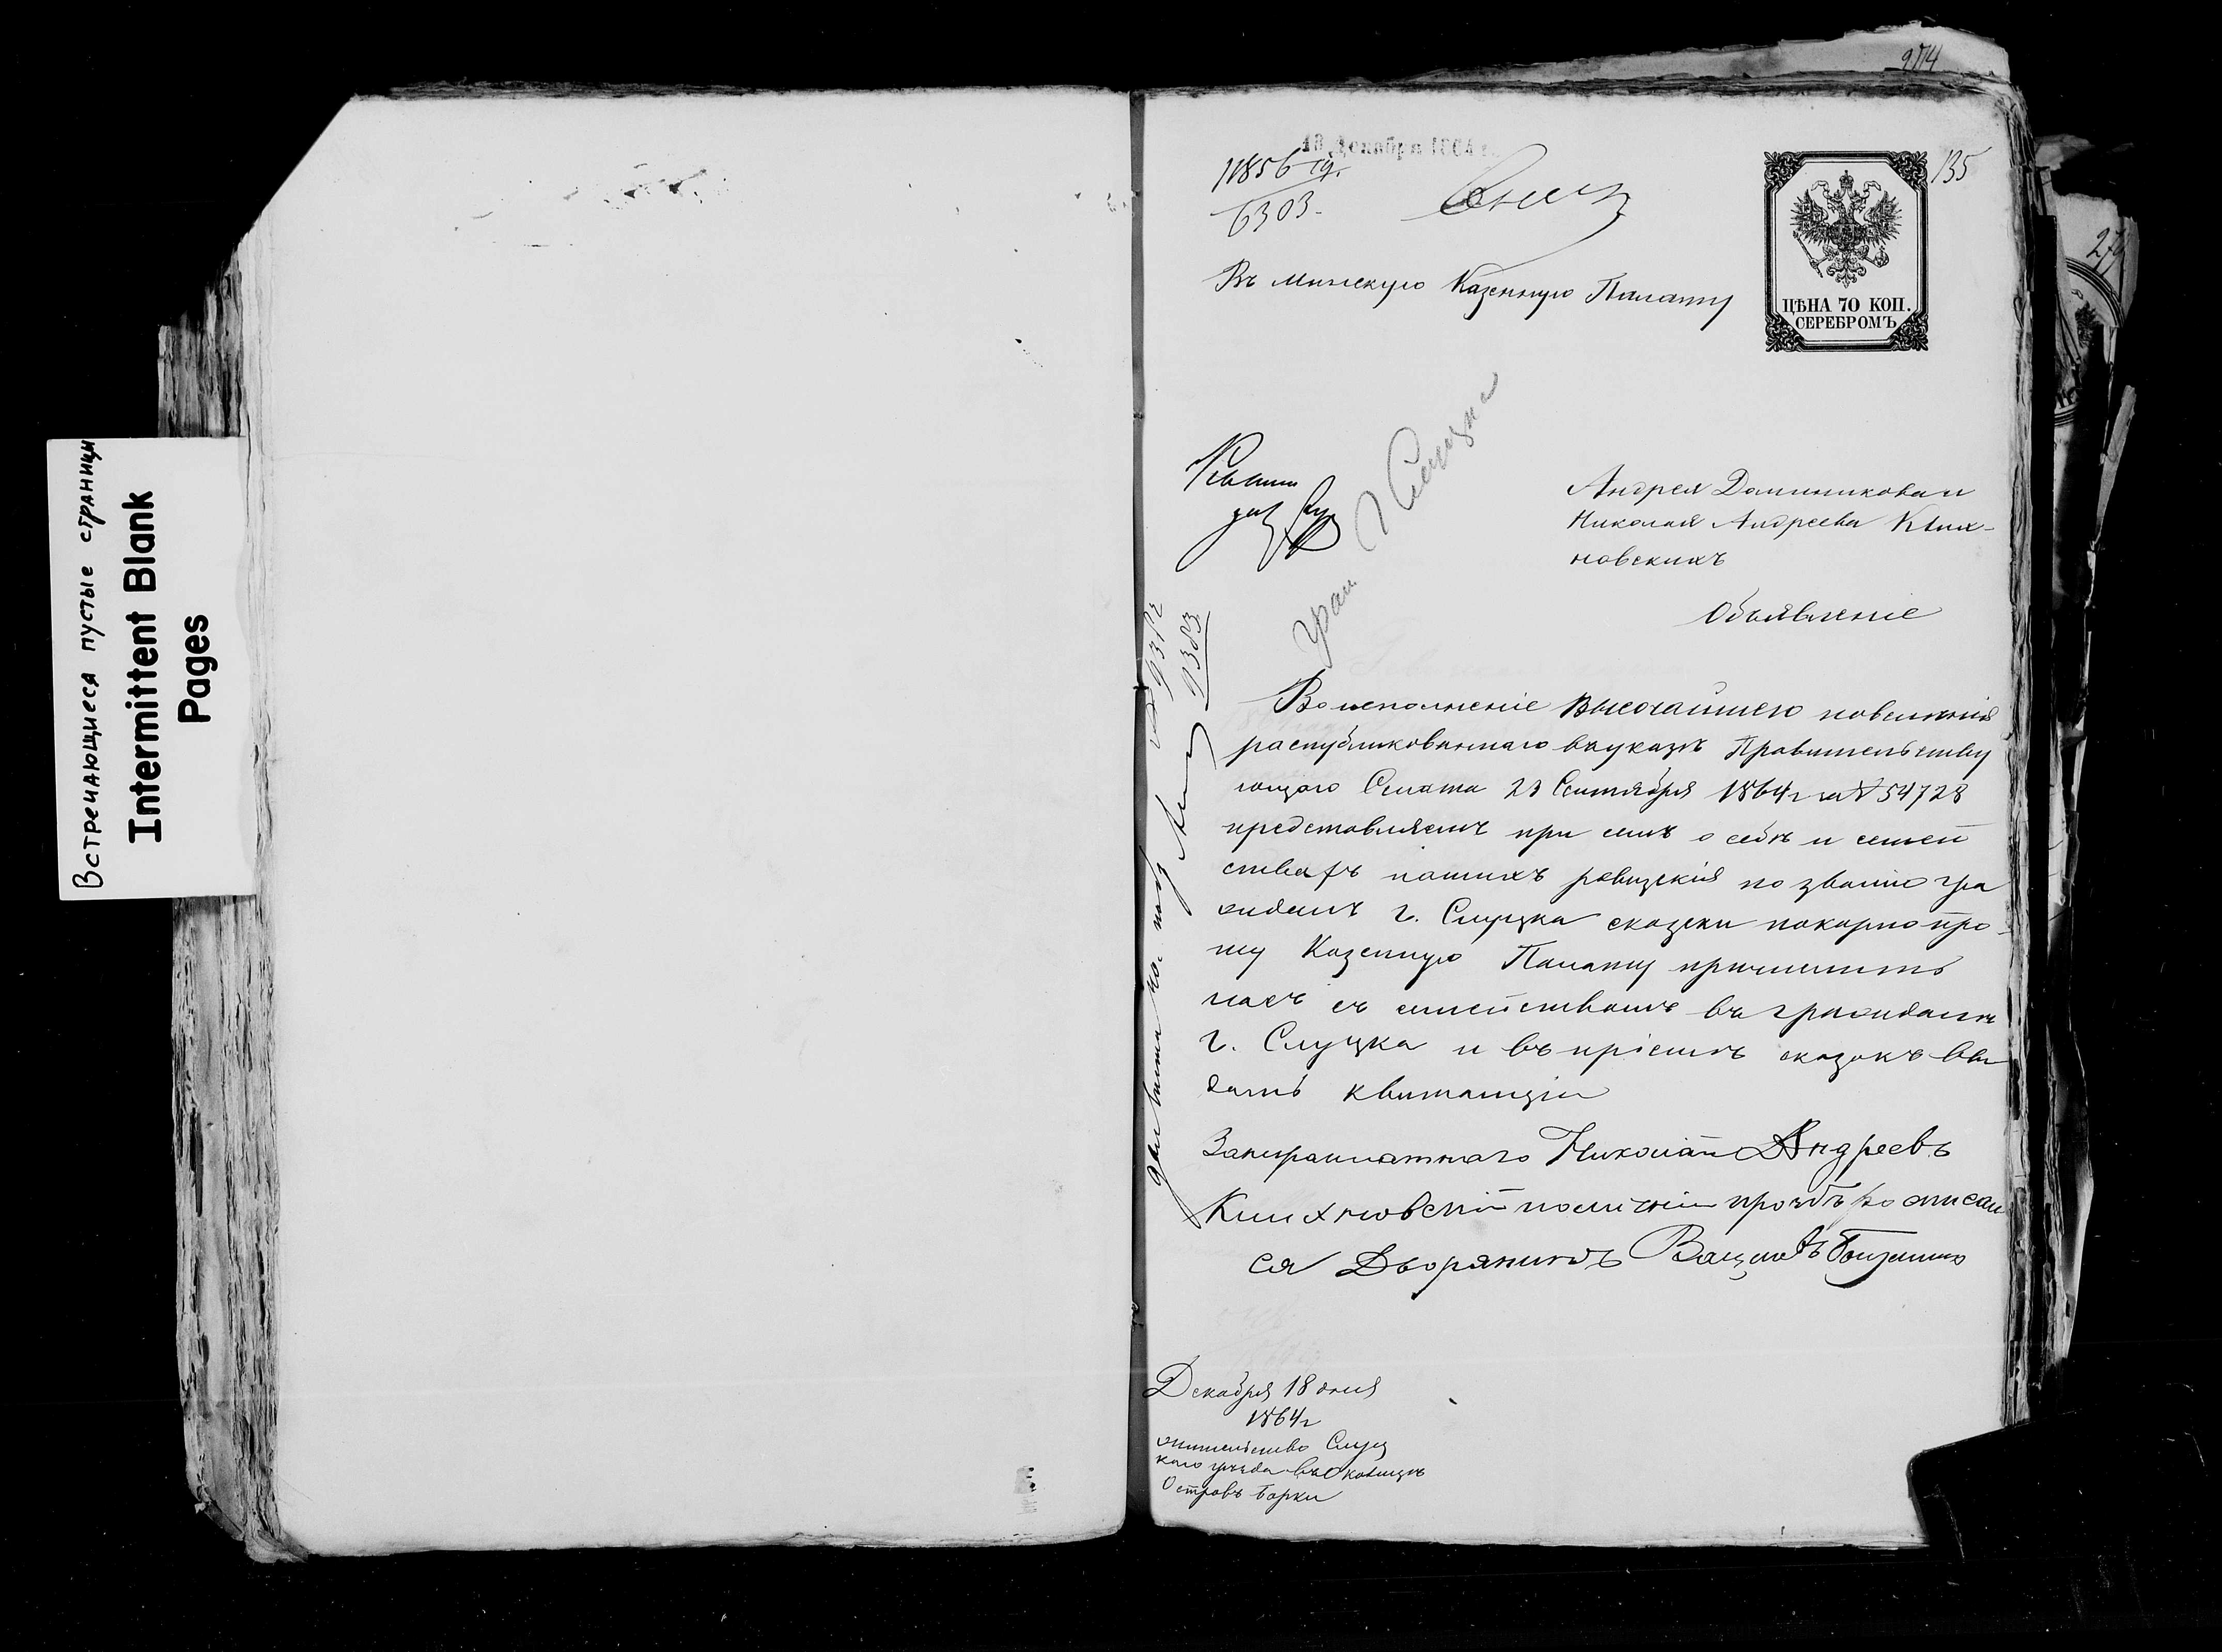 Встречающиеся пустые страницы
Intermittent Blank
Pages
274
135
19 Декабря 1864 г.
11856
6303.
ЦѢНА 70 КОП.
СЕРЕБРОМЪ
Въ Минскую Казенную Палату
граж. г Слуцка
Андрея Доминикова и
Николая Андреева Клих-
новскихъ
Объявленіе
Во исполненіе Высочайшего повеленія
распубликованнаго въ указѣ Правительству
ющаго Сената 23 Сентября 1864 г за № 54728
представляемъ при семъ о себѣ и семей
ствахъ нашихъ ревизскія по званію гра
жданъ г. Слуцка сказки покорно про-
шу Казенную Палату причислить
насъ съ семействомъ въ граждане
г. Слуцка и въ пріемѣ сказокъ вы
дать квитанціи
За неграмотнаго Николай Андреевъ
Клихновскій по личной прозбѣ росписал
ся Дворянинъ Вацлавъ
Декабря 18 дня
1864 г
жительство Слуц
каго уѣзда въ околицѣ
Островъ Борки